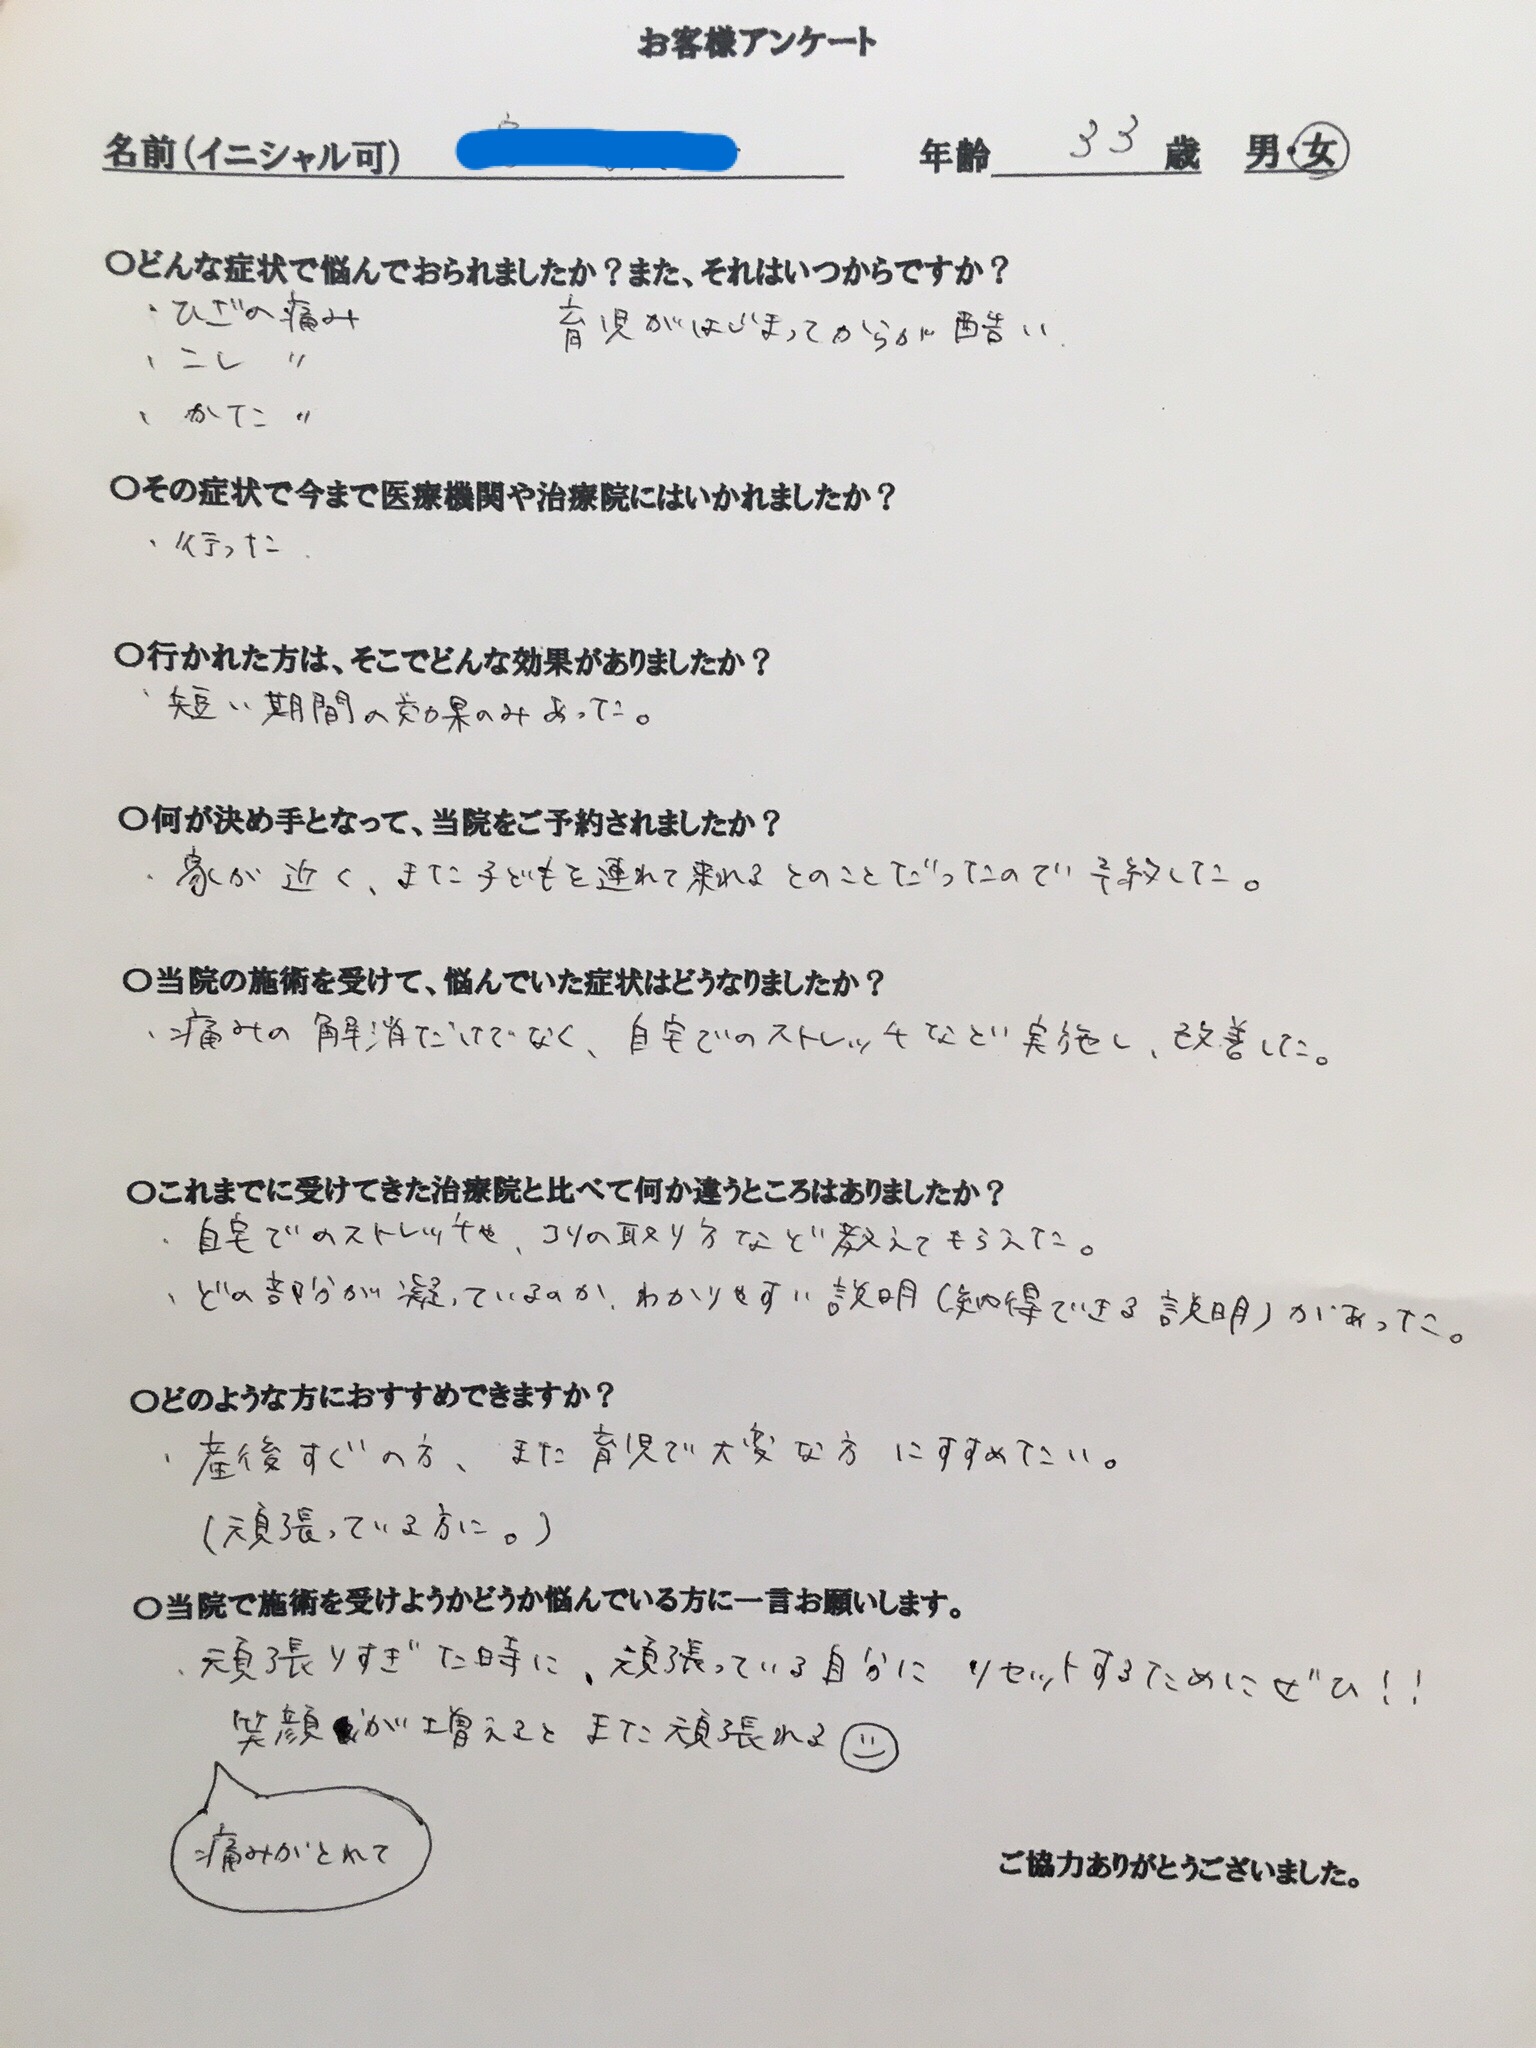 お客様アンケート
名前(イニシャル可) 年齢 33 歳 男・女
〇どんな症状で悩んでおられましたか？また、それはいつからですか？
・ひざの痛み 育児がはじまってからが酷い.
・こし 〃
・かた 〃
〇その症状で今まで医療機関や治療院にはいかれましたか？
・行った.
〇行かれた方は、そこでどんな効果がありましたか？
・短い期間の効果のみあった。
〇何が決め手となって、当院をご予約されましたか？
・家が近く、また子どもを連れて来れるとのことだったので予約した。
〇当院の施術を受けて、悩んでいた症状はどうなりましたか？
・痛みの解消だけでなく、自宅でのストレッチなど実施し、改善した。
〇これまでに受けてきた治療院と比べて何か違うところはありましたか？
・自宅でのストレッチや、コリの取り方など教えてもらえた。
・どの部分が凝っているのか、わかりやすい説明(納得できる説明)があった。
〇どのような方におすすめできますか？
・産後すぐの方、また育児で大変な方にすすめたい。
(頑張っている方に。)
〇当院で施術を受けようかどうか悩んでいる方に一言お願いします。
・頑張りすぎた時に、頑張っている自分にリセットするためにぜひ!!
笑顔が増えるとまた頑張れる
痛みがとれて
ご協力ありがとうございました。